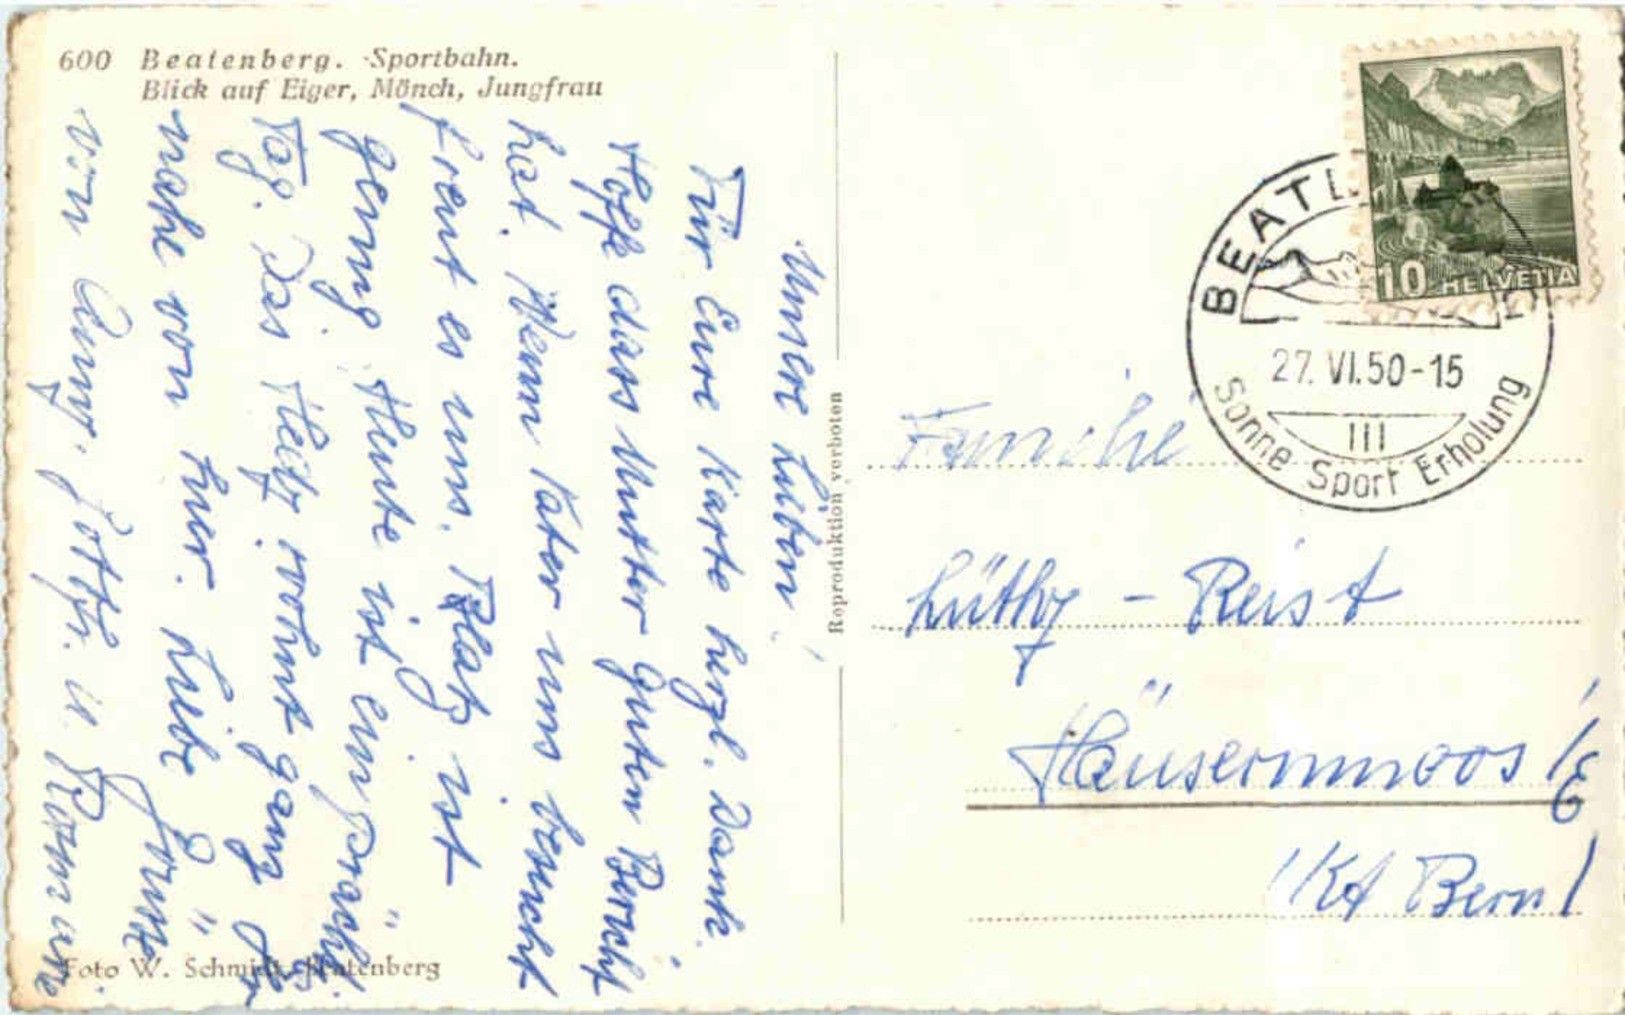 600 Beatenberg. Sportbahn.
Blick auf Eiger, Mönch, Jungfrau
Unsere Lieben!
Für Eure Karte herzl. Dank.
Hoffe dass Mutter guten Bericht
hat. Wenn Vater uns besucht
freut es uns. Platz ist
genug. Heute ist ein prächt.
Tag. Das Heitz wohnt ganz
nahe von hier. Liebe Grüsse
von Gottfr. u. Rosmarie
Reproduktion verboten
Foto W. Schmidt, Beatenberg
10 HELVETIA
BEAT
27. VI. 50-15
III
Sonne Sport Erholung
Familie
Lüthy - Reist
Häusernmoos i/E
(Kt Bern)